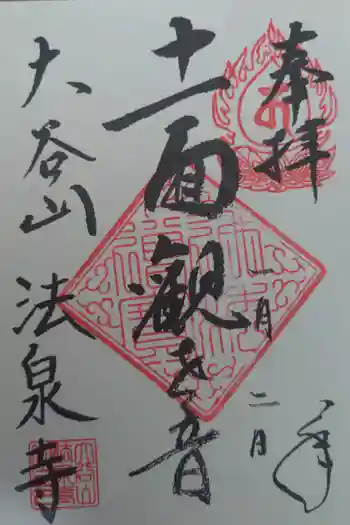 奉拝
一月
二月
十一面観世音
大谷山
法泉寺